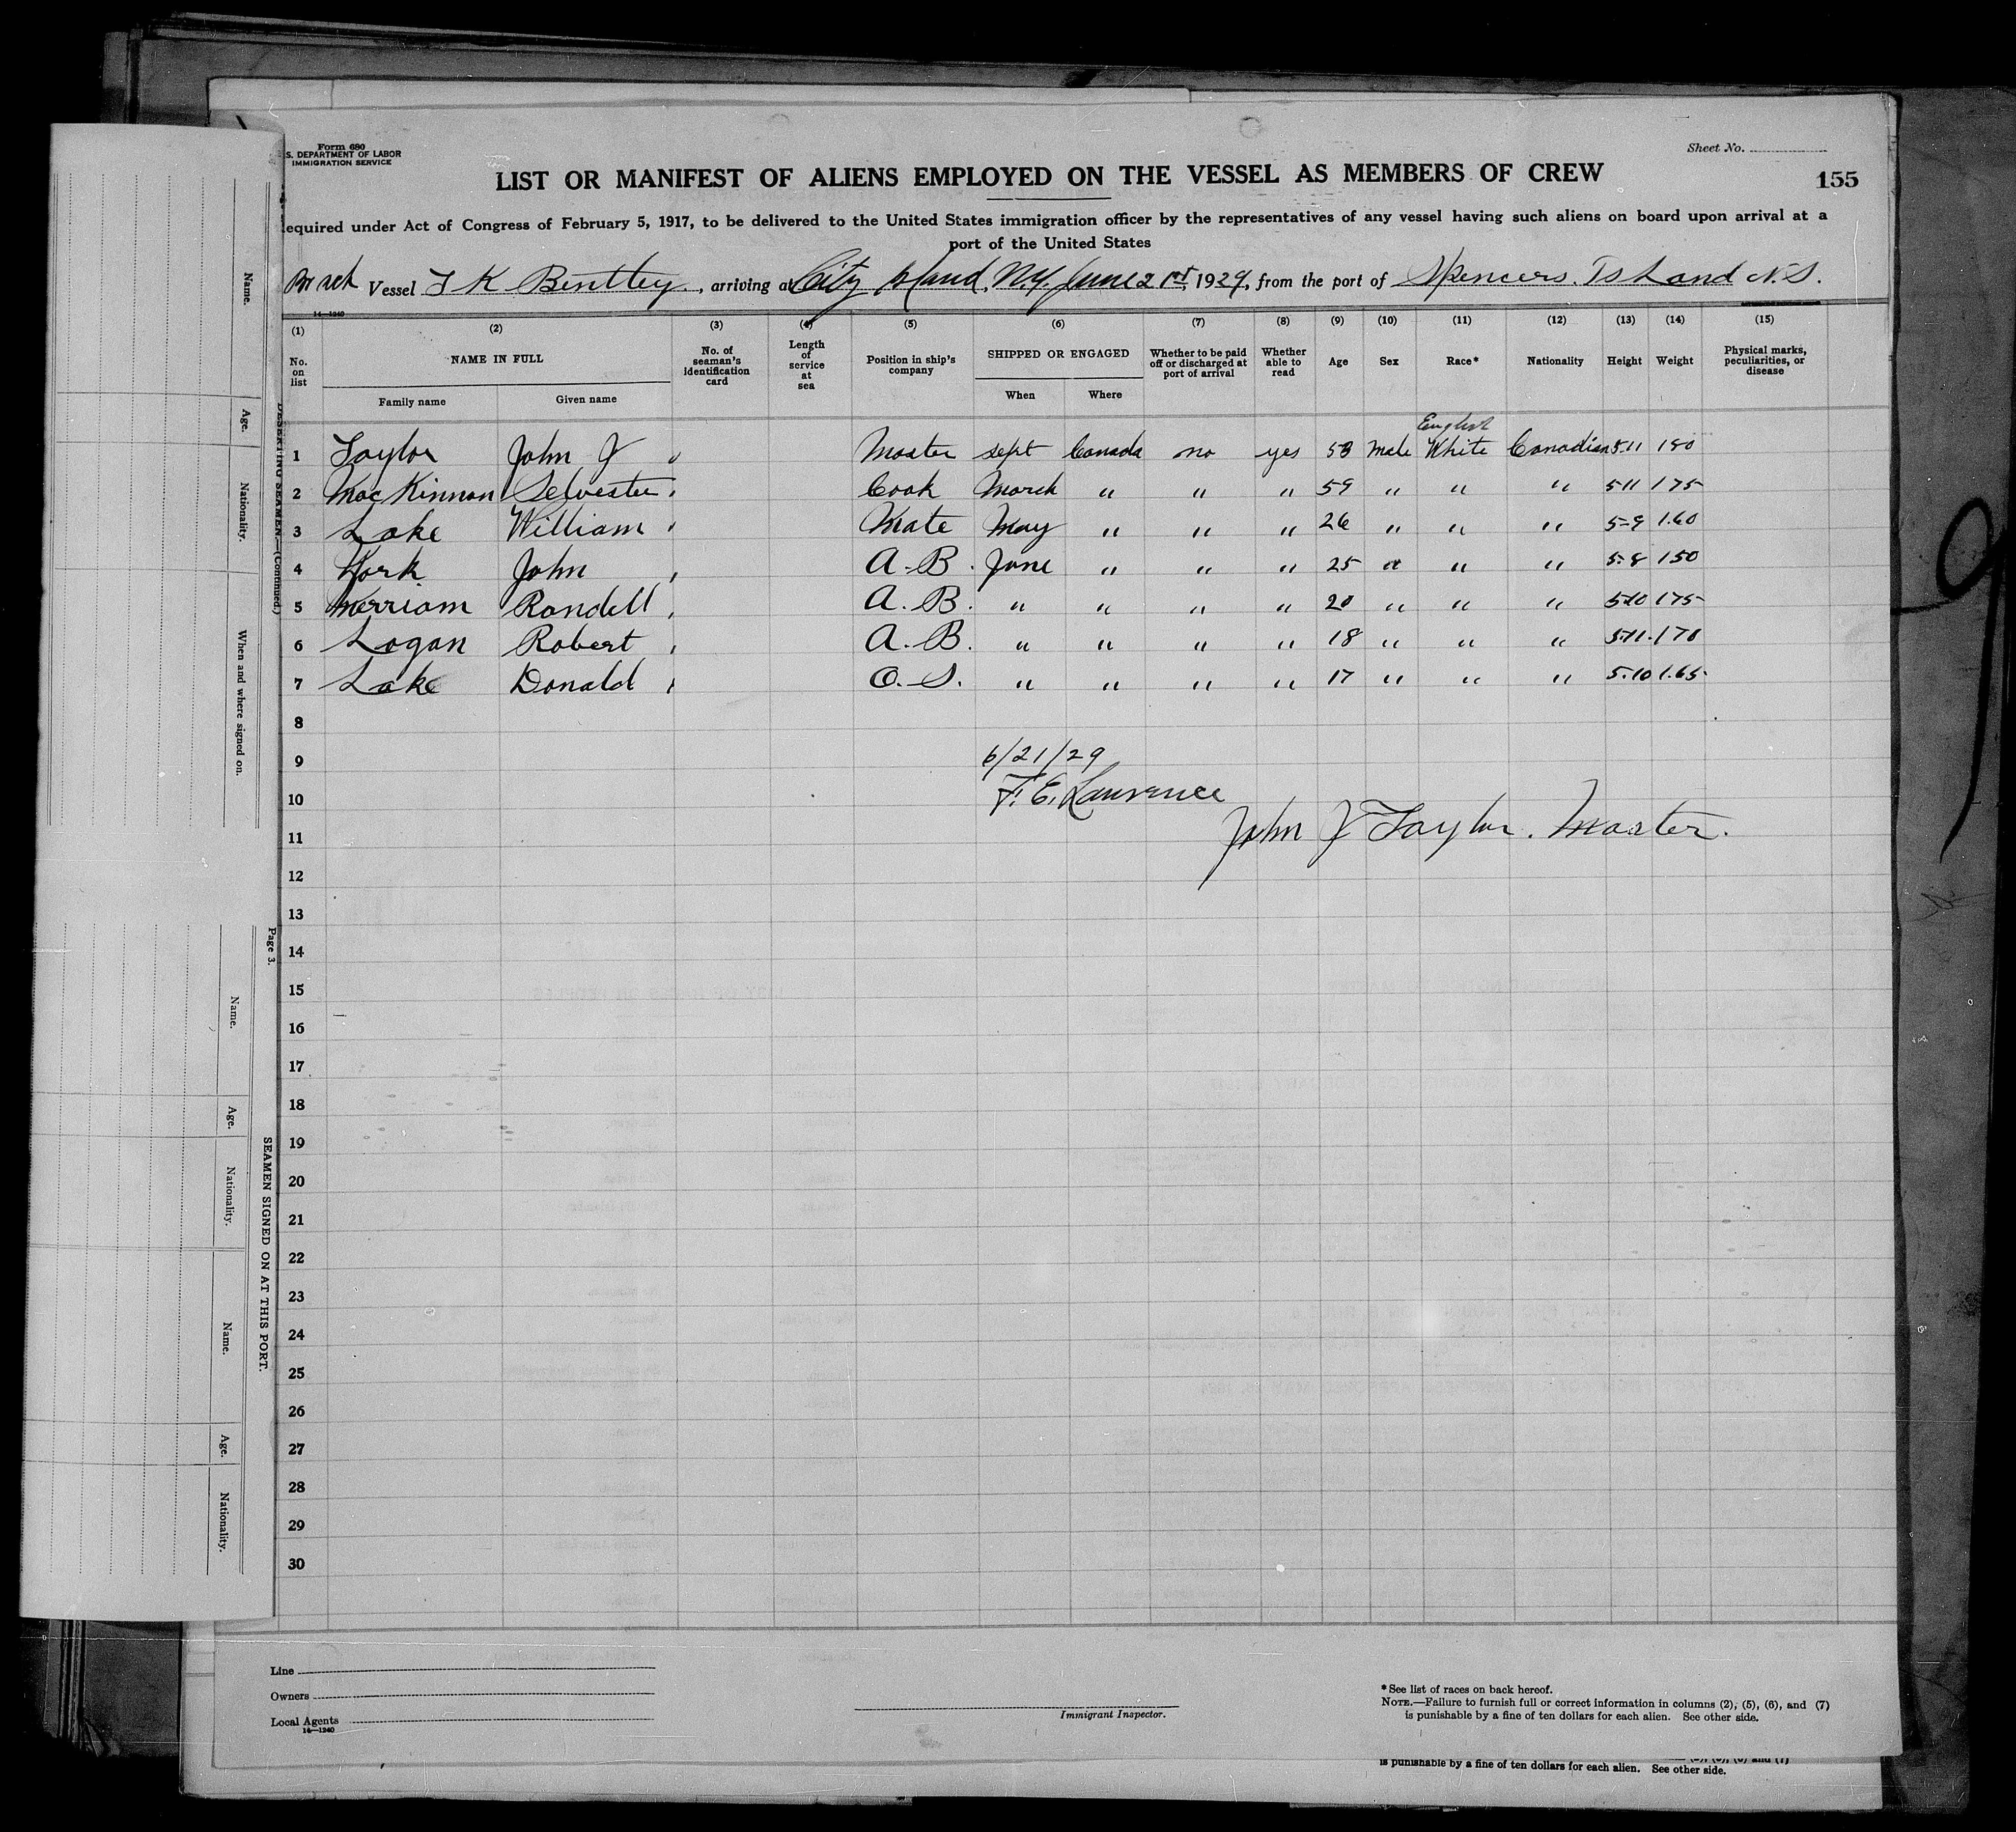 Form 680
S. DEPARTMENT OF LABOR
IMMIGRATION SERVICE
Sheet No.
LIST OR MANIFEST OF ALIENS EMPLOYED ON THE VESSEL AS MEMBERS OF CREW
155
equired under Act of Congress of February 5, 1917, to be delivered to the United States immigration officer by the representatives of any vessel having such aliens on board upon arrival at a
port of the United States
Br sch Vessel T K Bentley, arriving at City Island, N.Y. June 21st, 1929, from the port of Spencers. Island N.S.
14—1240
(1) (2) (3) (4) (5) (6) (7) (8) (9) (10) (11) (12) (13) (14) (15)
No. on list
NAME IN FULL
Family name
Given name
No. of seaman's identification card
Length of service at sea
Position in ship's company
SHIPPED OR ENGAGED
When
Where
Whether to be paid off or discharged at port of arrival
Whether able to read
Age
Sex
Race*
Nationality
Height
Weight
Physical marks, peculiarities, or disease
English
1 Taylor John J Master Sept Canada no yes 53 Male White Canadian 5.11 180
2 MacKinnon Selvester Cook March " " " 59 " " " 5 11 175
3 Lake William Mate May " " " 26 " " " 5-9 1.60
4 York John A-B. June " " " 25 " " " 5-8 150
5 Merriam Randell A.B. " " " " 20 " " " 5.10 175
6 Logan Robert A.B. " " " " 18 " " " 5.11. 170
7 Lake Donald O.S. " " " " 17 " " " 5.10 1.65.
8
9 6/21/29
10 F. E. Lawrence
11 John J Taylor. Master.
12
13
14
15
16
17
18
19
20
21
22
23
24
25
26
27
28
29
30
Line
Owners
Local Agents
14—1240
Immigrant Inspector.
*See list of races on back hereof.
NOTE.—Failure to furnish full or correct information in columns (2), (5), (6), and (7)
is punishable by a fine of ten dollars for each alien. See other side.
is punishable by a fine of ten dollars for each alien. See other side.
DESERTING SEAMEN.—(Continued.)
Name.
Age.
Nationality.
When and where signed on.
Page 3.
SEAMEN SIGNED ON AT THIS PORT.
Name.
Age.
Nationality.
Name.
Age.
Nationality.
9